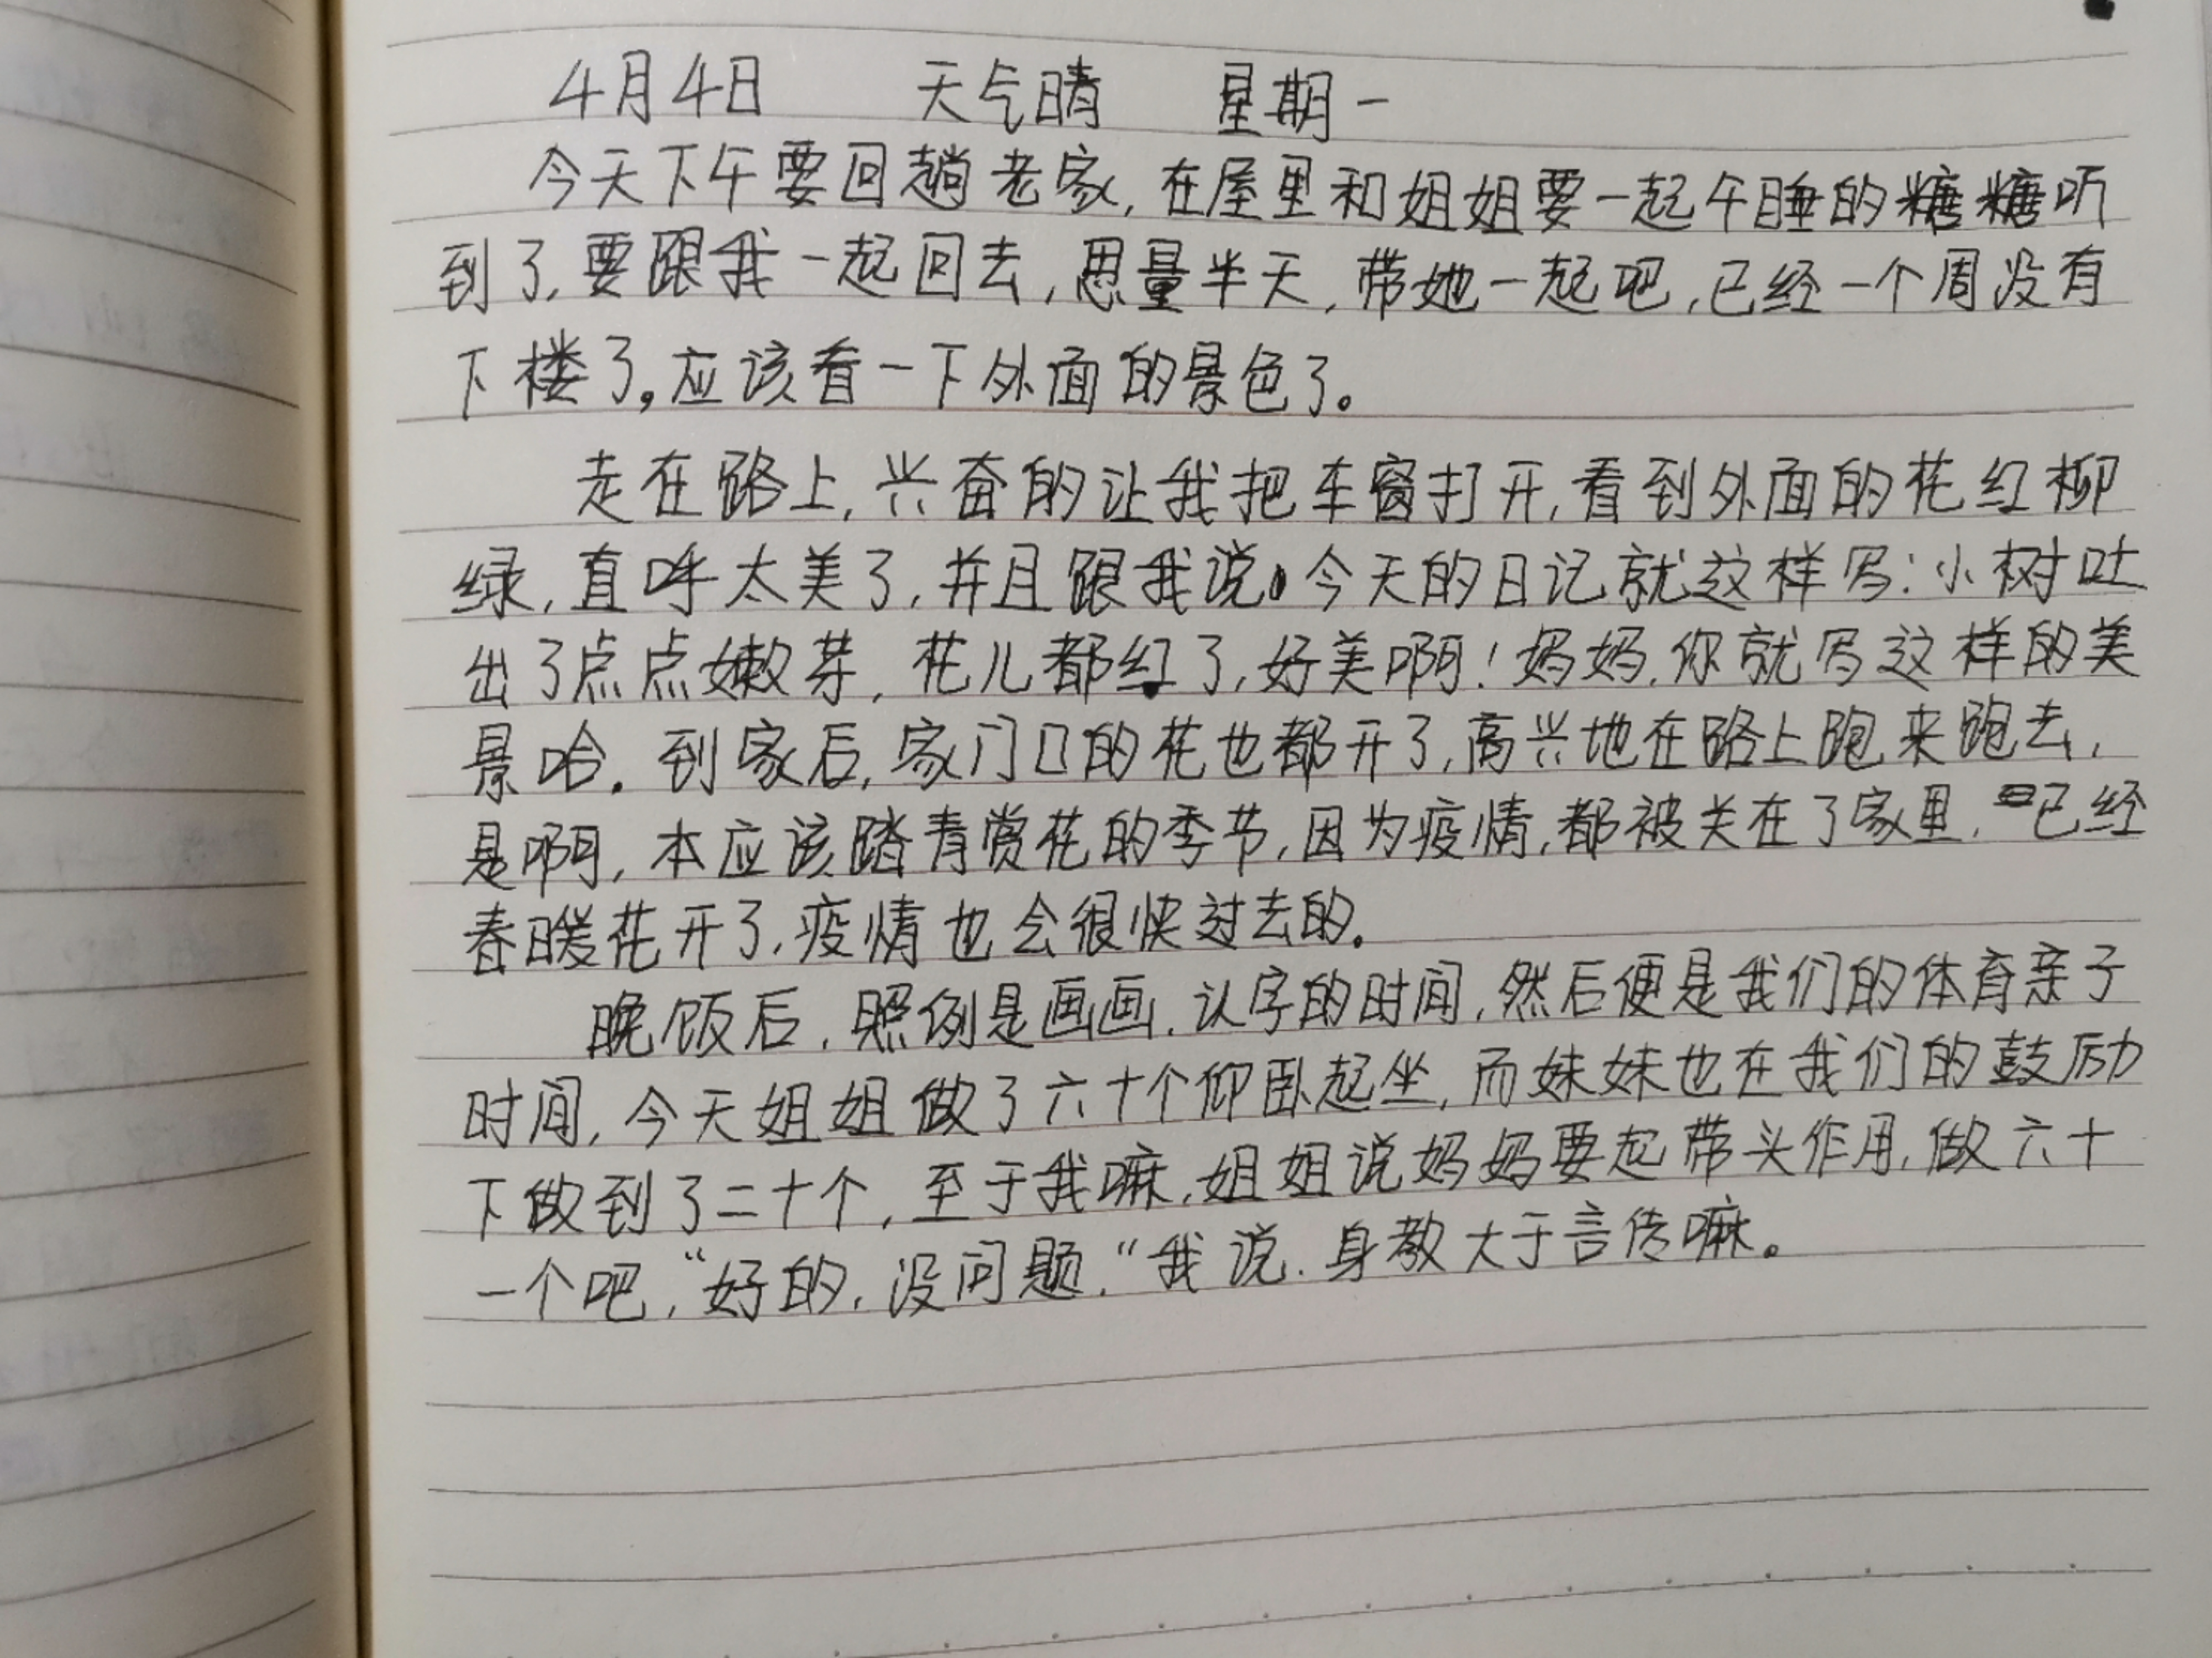 4月4日 天气晴 星期一
今天下午要回趟老家,在屋里和姐姐要一起午睡的糖糖听
到了,要跟我一起回去,思量半天,带她一起吧,已经一个周没有
下楼了。应该看一下外面的景色了。
走在路上,兴奋的让我把车窗打开,看到外面的花红柳
绿,直呼太美了,并且跟我说,今天的日记就这样写:小树吐
出了点点嫩芽,花儿都红了,好美啊!妈妈,你就写这样的美
景哈。到家后,家门口的花也都开了,高兴地在路上跑来跑去,
是啊,本应该踏青赏花的季节,因为疫情,都被关在了家里,已经
春暖花开了,疫情也会很快过去的。
晚饭后,照例是画画,认字的时间,然后便是我们的体育亲子
时间,今天姐姐做了六十个仰卧起坐,而妹妹也在我们的鼓励
下做到了二十个,至于我嘛,姐姐说妈妈要起带头作用,做六十
一个吧,“好的,没问题,“我说.身教大于言传嘛。